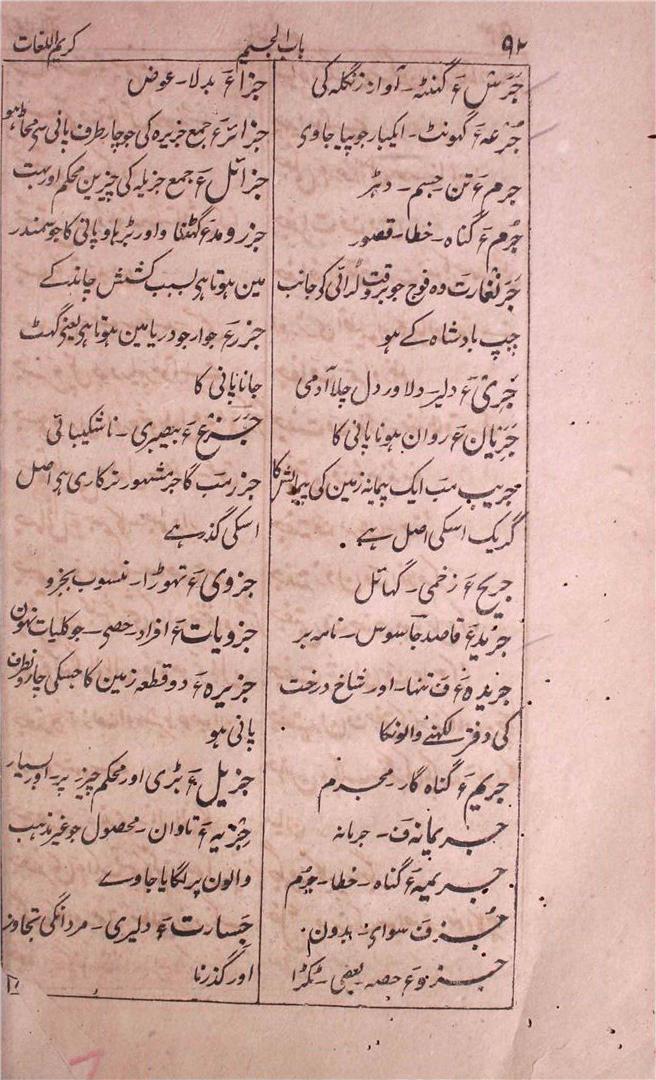 ۹۲ باب الجیم کریم اللغات
جَرَس ع گھنٹہ۔ آواز زنگلہ کی
جُرعہ ع گھونٹ۔ ایکبار جو پیا جاوی
جرم ع تن۔ جسم۔ دہڑ
جُرم ع گناہ۔ خطا۔ قصور
جَرَنغارت وہ فوج جو بروقت لڑائی کی جانب
چپ بادشاہ کے ہو
جَرّی ع دلیر۔ دلاور دل چلا آدمی
جَرَیان ع روان ہونا پانی کا
جریب مب ایک پیمانہ زمین کی پیمایش کا
گریک اسکی اصل ہے۔
جریح ع زخمی۔ گہائل
جرید ع قاصد جاسوس۔ نامہ بر
جریدہ ع ف تنہا۔ اور شاخ درخت
کی دفتر لکھنے والونکا
جریم ع گناہ گار۔ مجرم
جریمانہ ف۔ جرمانہ
جریمہ ع گناہ۔ خطا۔ جرم
جُز ف سوای۔ بدون۔
جزو ع حصہ۔ بعضی۔ ٹکڑا
جزا ع بدلا۔ عوض
جزائر ع جمع جزیرہ کی جو چارطرف پانی سی محاط ہو
جزائل ع جمع جزیلہ کی چیزین محکم اور بہت
جزر و مد ع گھٹنا و اور بڑہاو پانی کا جو سمندر
مین ہوتا ہی بسبب کشش چاند کے
جزر ع جوار جو دریا مین ہوتا ہی یعنی گھٹ
جانا پانی کا
جَزَع ع بیصبری۔ ناشکیبائی
جزر مب گاجر مشہور ترکاری ہی اصل
اسکی گذر ہے
جزوی ع تہوڑا۔ منسوب بجزو
جزویات ع افراد۔ حصی۔ جو کلیات نہون
جزیرہ ع دو قطعہ زمین کا جسکی چارونطرف
پانی ہو
جزیل ع بڑی اور محکم چیز۔ پر۔ اور بسیار
جِزیہ ع تاوان۔ محصول جو غیر مذہب
والون پر لگایا جاوے
جَسارت ع دلیری۔ مردانگی تجاوز
اور گذرنا